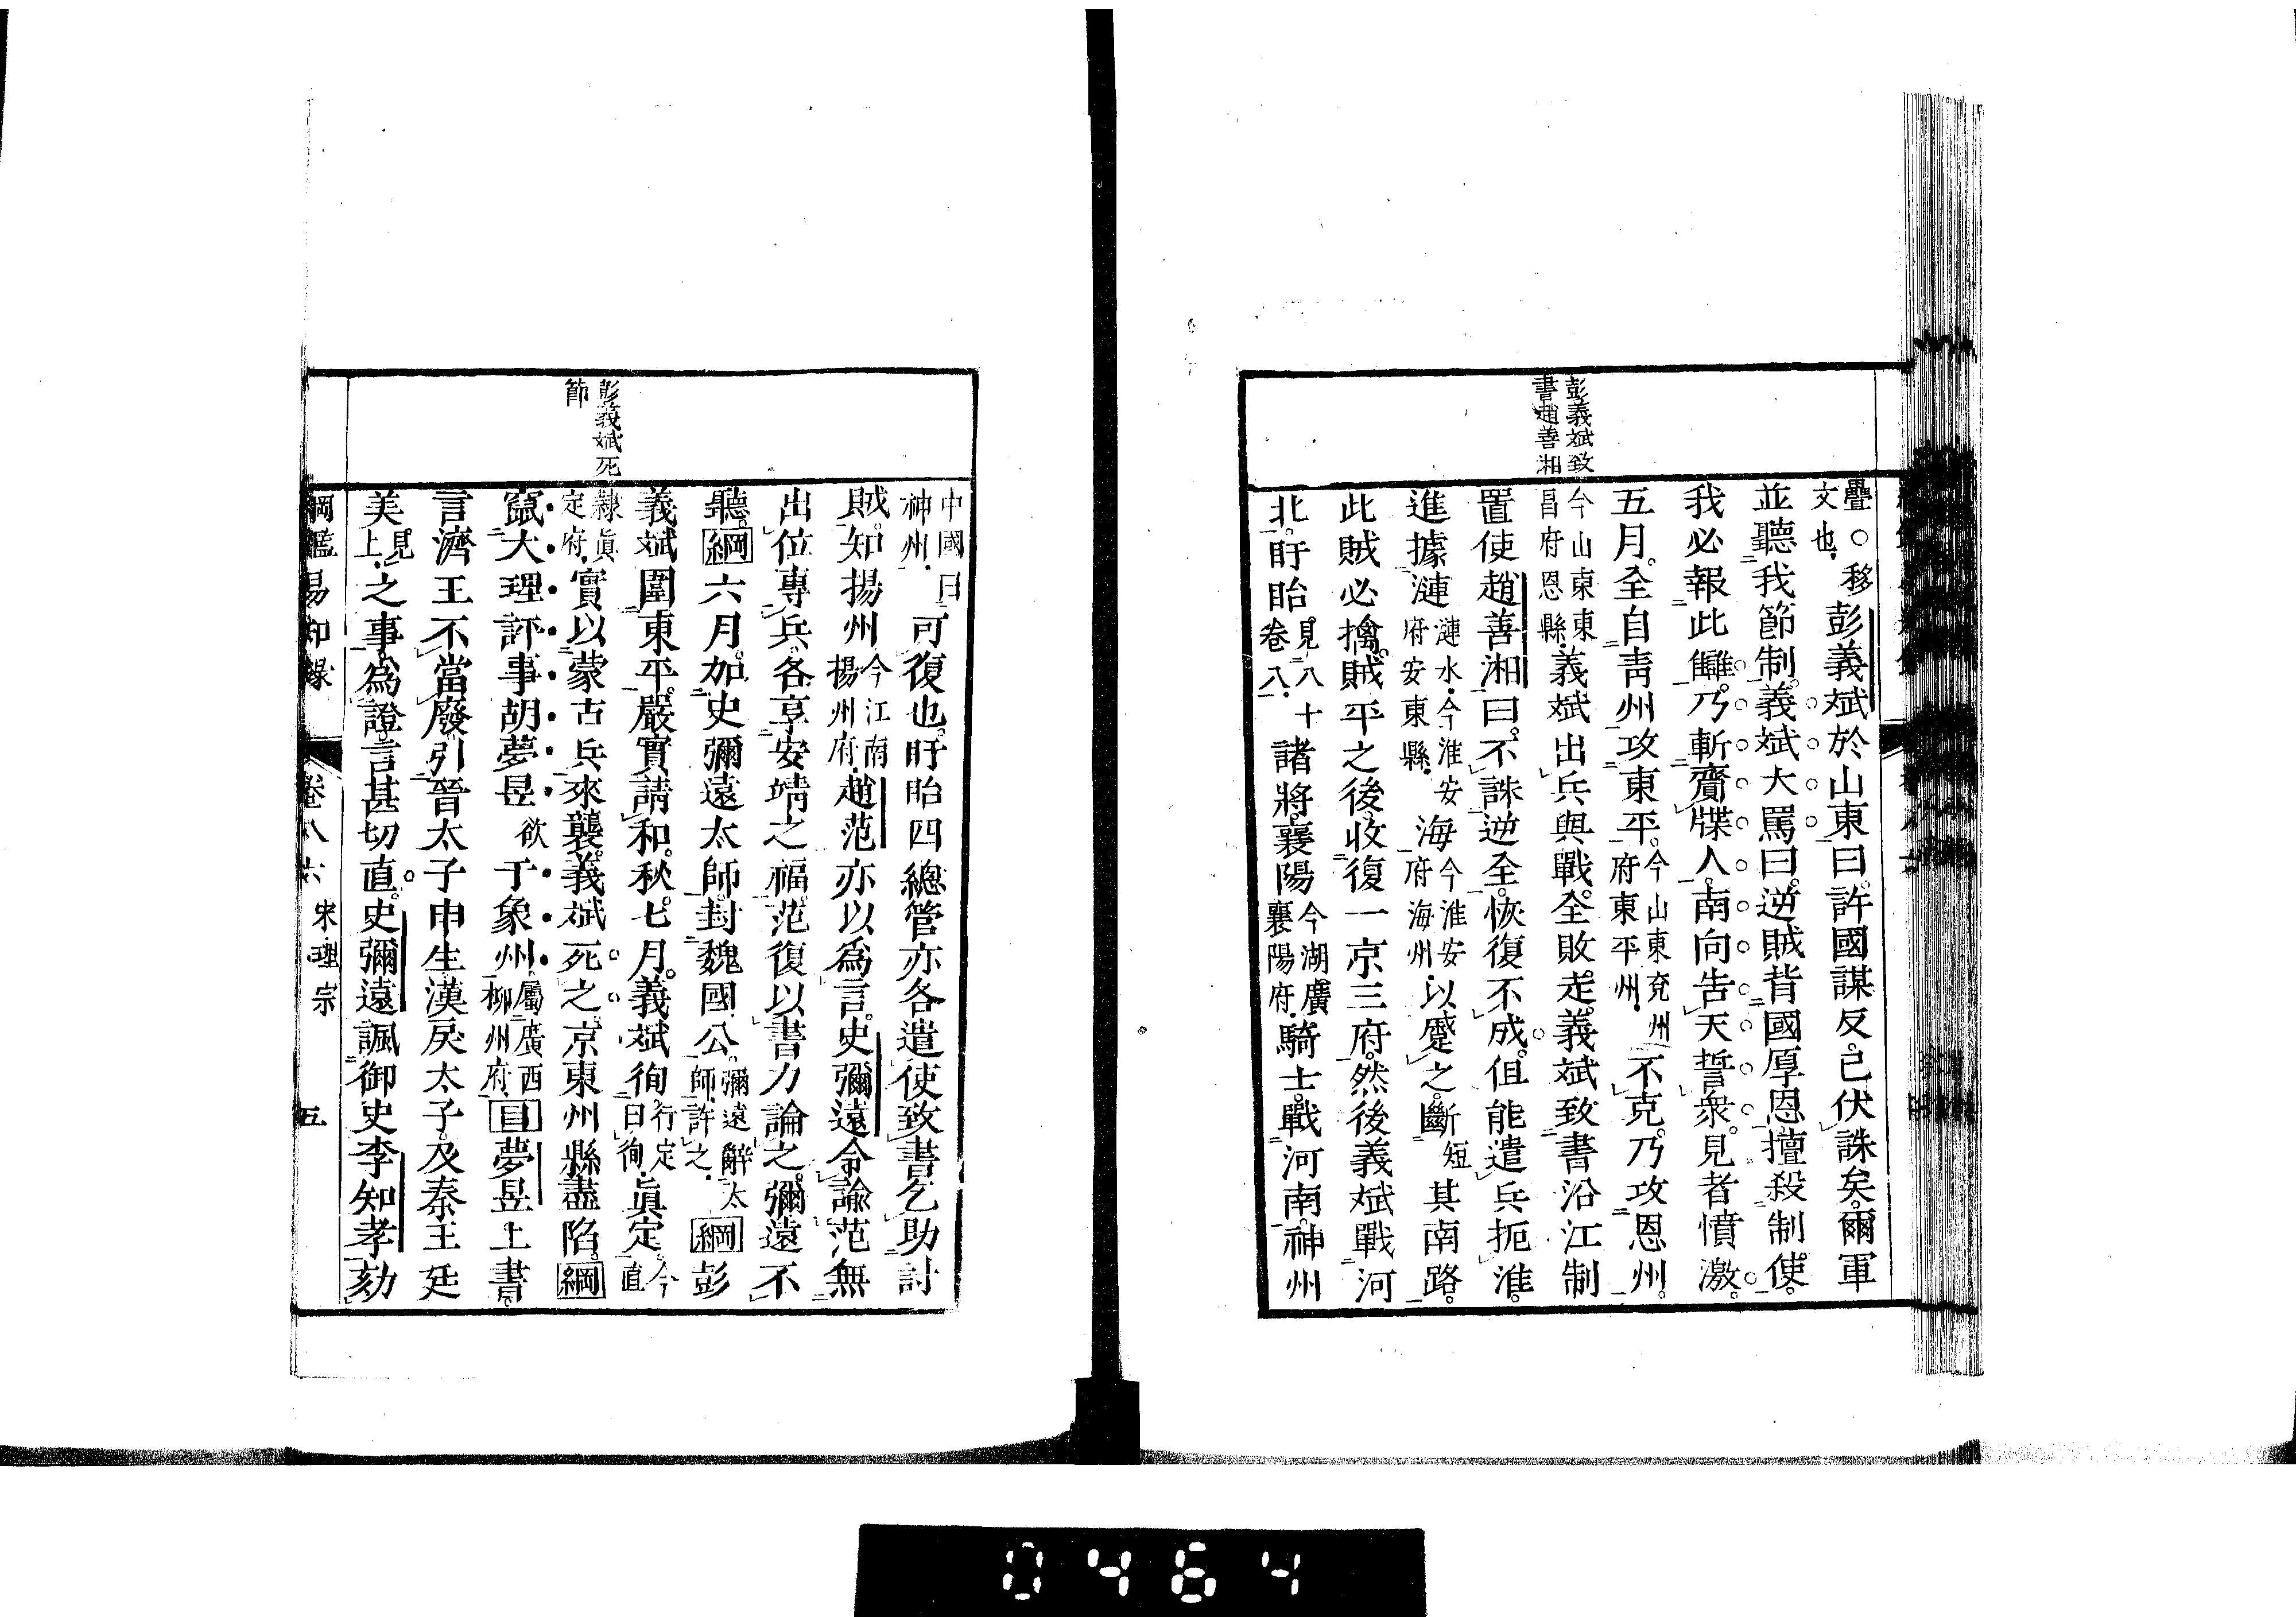 彭義斌致
書趙善湘
疊○移文也彭義斌於山東曰許國謀反已伏誅矣爾軍
並聽我節制義斌大罵曰逆賊背國厚恩擅殺制使
我必報此讎乃斬齎牒人南向告天誓衆見者憤激
五月全自靑州攻東平今山東兗州府東平州不克乃攻恩州
今山東東昌府恩縣義斌出兵與戰全敗走義斌致書沿江制
置使趙善湘曰不誅逆全恢復不成但能遣兵扼淮
進據漣漣水今淮安府安東縣海今淮安府海州以蹙之斷短其南路
此賊必擒賊平之後收復一京三府然後義斌戰河
北盱眙見八十卷八諸將襄陽今湖廣襄陽府騎士戰河南神州
彭義斌死
節
中國曰神州可復也盱眙四總管亦各遣使致書乞助討
賊知揚州今江南揚州府趙范亦以爲言史彌遠令諭范無
出位專兵各享安靖之福范復以書力論之彌遠不
聽綱六月加史彌遠太師封魏國公彌遠辭太師許之綱彭
義斌圍東平嚴實請和秋七月義斌徇行定曰徇眞定今直
隸眞定府實以蒙古兵來襲義斌死之京東州縣盡陷綱
竄大理評事胡夢昱欲于象州屬廣西柳州府目夢昱上書
言濟王不當廢引晉太子申生漢戾太子及秦王廷
美見上之事爲證言甚切直史彌遠諷御史李知孝劾
綱鑑易知錄 卷八六 宋理宗 五
0464